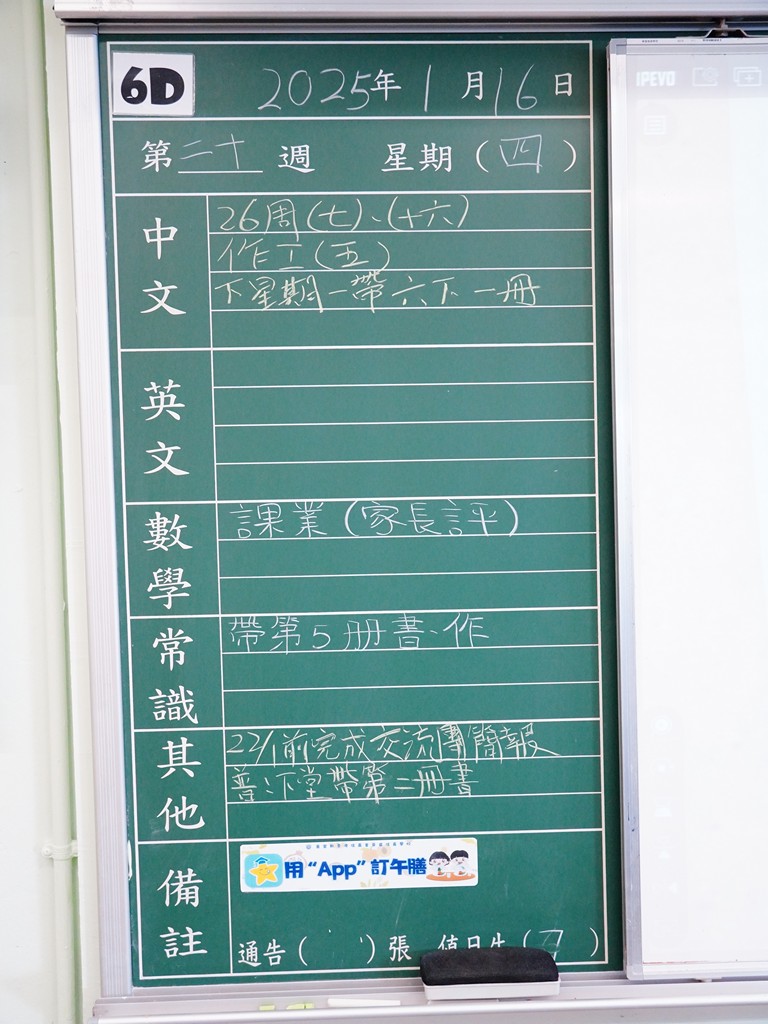 6D 2025年1月16日
第二十週 星期(四)
中文
26周(七)、(十六)
作工(五)
下星期一帶六下一冊
英文
數學
課業(家長評)
常識
帶第5冊書、作
其他
22/1前完成交流團簡報
普:下堂帶第二冊書
備註
用“App”訂午膳
通告( )張 值日生( )
IPEVO